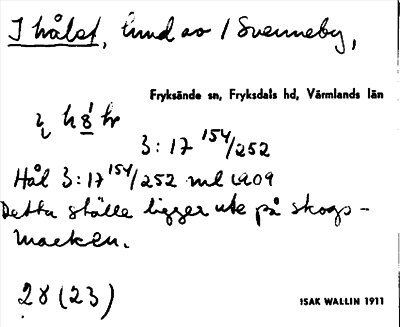 I hålet, lund av / Svenneby,
Fryksände sn, Fryksdals hd, Värmlands län
3:17 154/252
Hål 3:17 154/252 ml 1909
Detta ställe ligger ute på skogs-
marken.
28 (23)
ISAK WALLIN 1911